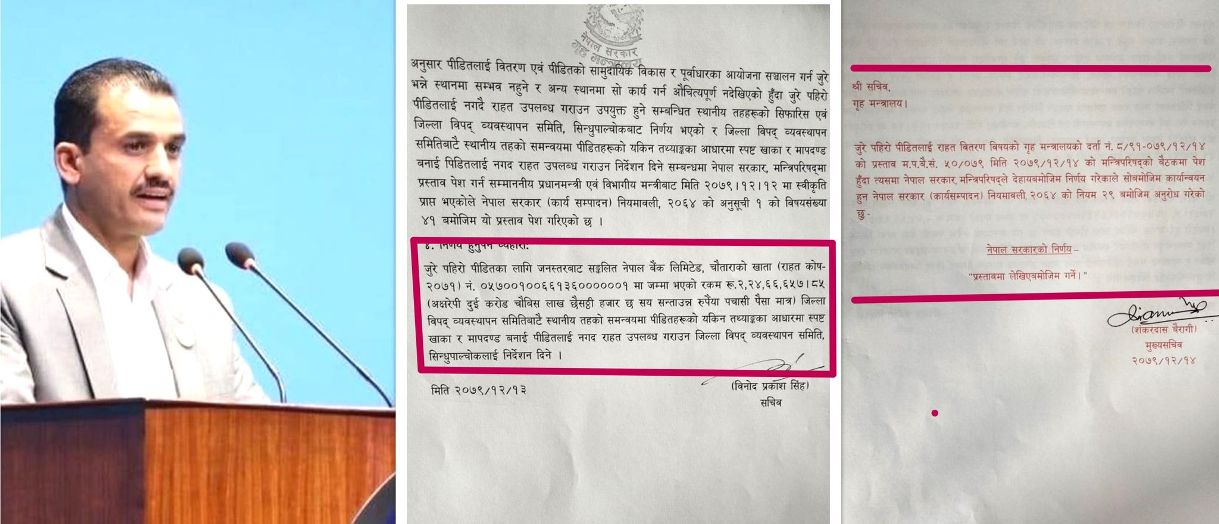 नेपाल सरकार
गृह मन्त्रालय
अनुसार पीडितलाई वितरण एवं पीडितको सामुदायिक विकास र पूर्वाधारका आयोजना सञ्चालन गर्न जुरे
भन्ने स्थानमा सम्भव नहुने र अन्य स्थानमा सो कार्य गर्न औचित्यपूर्ण नदेखिएको हुँदा जुरे पहिरो
पीडितलाई नगदै राहत उपलब्ध गराउन उपयुक्त हुने सम्बन्धित स्थानीय तहहरूको सिफारिस एवं
जिल्ला विपद् व्यवस्थापन समिति, सिन्धुपाल्चोकबाट निर्णय भएको र जिल्ला विपद् व्यवस्थापन
समितिबाटै स्थानीय तहको समन्वयमा पीडितहरूको यकिन तथ्याङ्कका आधारमा स्पष्ट खाका र मापदण्ड
बनाई पिडितलाई नगद राहत उपलब्ध गराउन निर्देशन दिने सम्बन्धमा नेपाल सरकार, मन्त्रिपरिषद्मा
प्रस्ताव पेश गर्न सम्माननीय प्रधानमन्त्री एवं विभागीय मन्त्रीबाट मिति २०७९।१२।१२ मा स्वीकृति
प्राप्त भएकोले नेपाल सरकार (कार्य सम्पादन) नियमावली, २०६४ को अनुसूची १ को विषयसंख्या
४१ बमोजिम यो प्रस्ताव पेश गरिएको छ ।
४. निर्णय हुनुपर्ने व्यहोरा:
जुरे पहिरो पीडितका लागि जनस्तरबाट सङ्कलित नेपाल बैंक लिमिटेड, चौताराको खाता (राहत कोष-
२०७१) नं. ०५७००१००६६१३६००००००१ मा जम्मा भएको रकम रू.२,२४,६६,६५७।८५
(अक्षरेपी दुई करोड चौविस लाख छैसट्ठी हजार छ सय सन्ताउन्न रुपैंया पचासी पैसा मात्र) जिल्ला
विपद् व्यवस्थापन समितिबाटै स्थानीय तहको समन्वयमा पीडितहरूको यकिन तथ्याङ्कका आधारमा स्पष्ट
खाका र मापदण्ड बनाई पीडितलाई नगद राहत उपलब्ध गराउन जिल्ला विपद् व्यवस्थापन समिति,
सिन्धुपाल्चोकलाई निर्देशन दिने ।
मिति २०७९/१२/१३
(विनोद प्रकाश सिंह)
सचिव
श्री सचिव,
गृह मन्त्रालय।
जुरे पहिरो पीडितलाई राहत वितरण विषयको गृह मन्त्रालयको दर्ता नं. ८/९१-०७९/१२/१४
को प्रस्ताव म.प.बै.सं. ५०/०७९ मिति २०७९/१२/१४ को मन्त्रिपरिषद्को बैठकमा पेश
हुँदा त्यसमा नेपाल सरकार, मन्त्रिपरिषद्ले देहायबमोजिम निर्णय गरेकाले सोबमोजिम कार्यान्वयन
हुन नेपाल सरकार (कार्यसम्पादन) नियमावली, २०६४ को नियम २९ बमोजिम अनुरोध गरेको
छु:-
नेपाल सरकारको निर्णय –
"प्रस्तावमा लेखिएबमोजिम गर्ने।"
(शंकरदास बैरागी)
मुख्यसचिव
२०७९/१२/१४